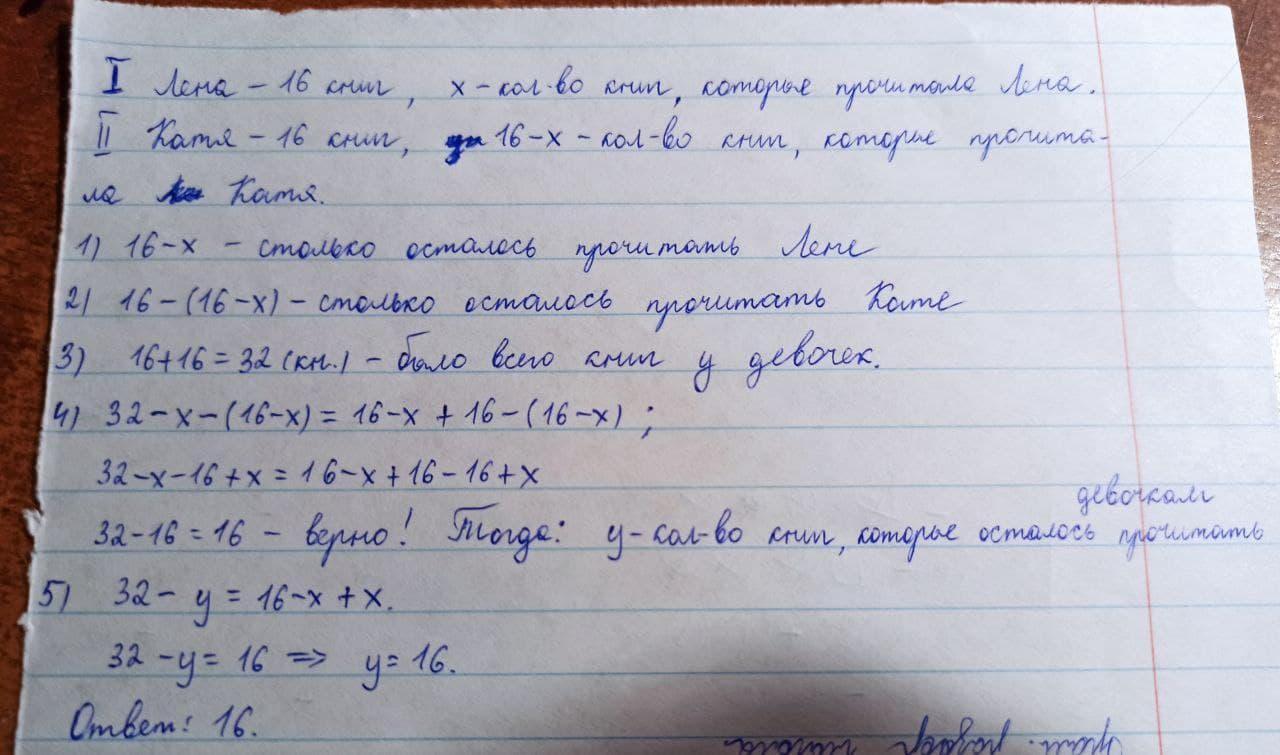 I Лена – 16 книг, х – кол-во книг, которые прочитала Лена.
II Катя – 16 книг, 16-х – кол-во книг, которые прочита-
ла Катя.
1) 16-х – столько осталось прочитать Лене
2) 16-(16-х) – столько осталось прочитать Кате
3) 16+16=32 (кн.) – было всего книг у девочек.
4) 32-х-(16-х)=16-х+16-(16-х);
32-х-16+х=16-х+16-16+х
девочкам
32-16=16 – верно! Тогда: у-кол-во книг, которые осталось прочитать
5) 32-у=16-х+х.
32-у=16 => у=16.
Ответ: 16.